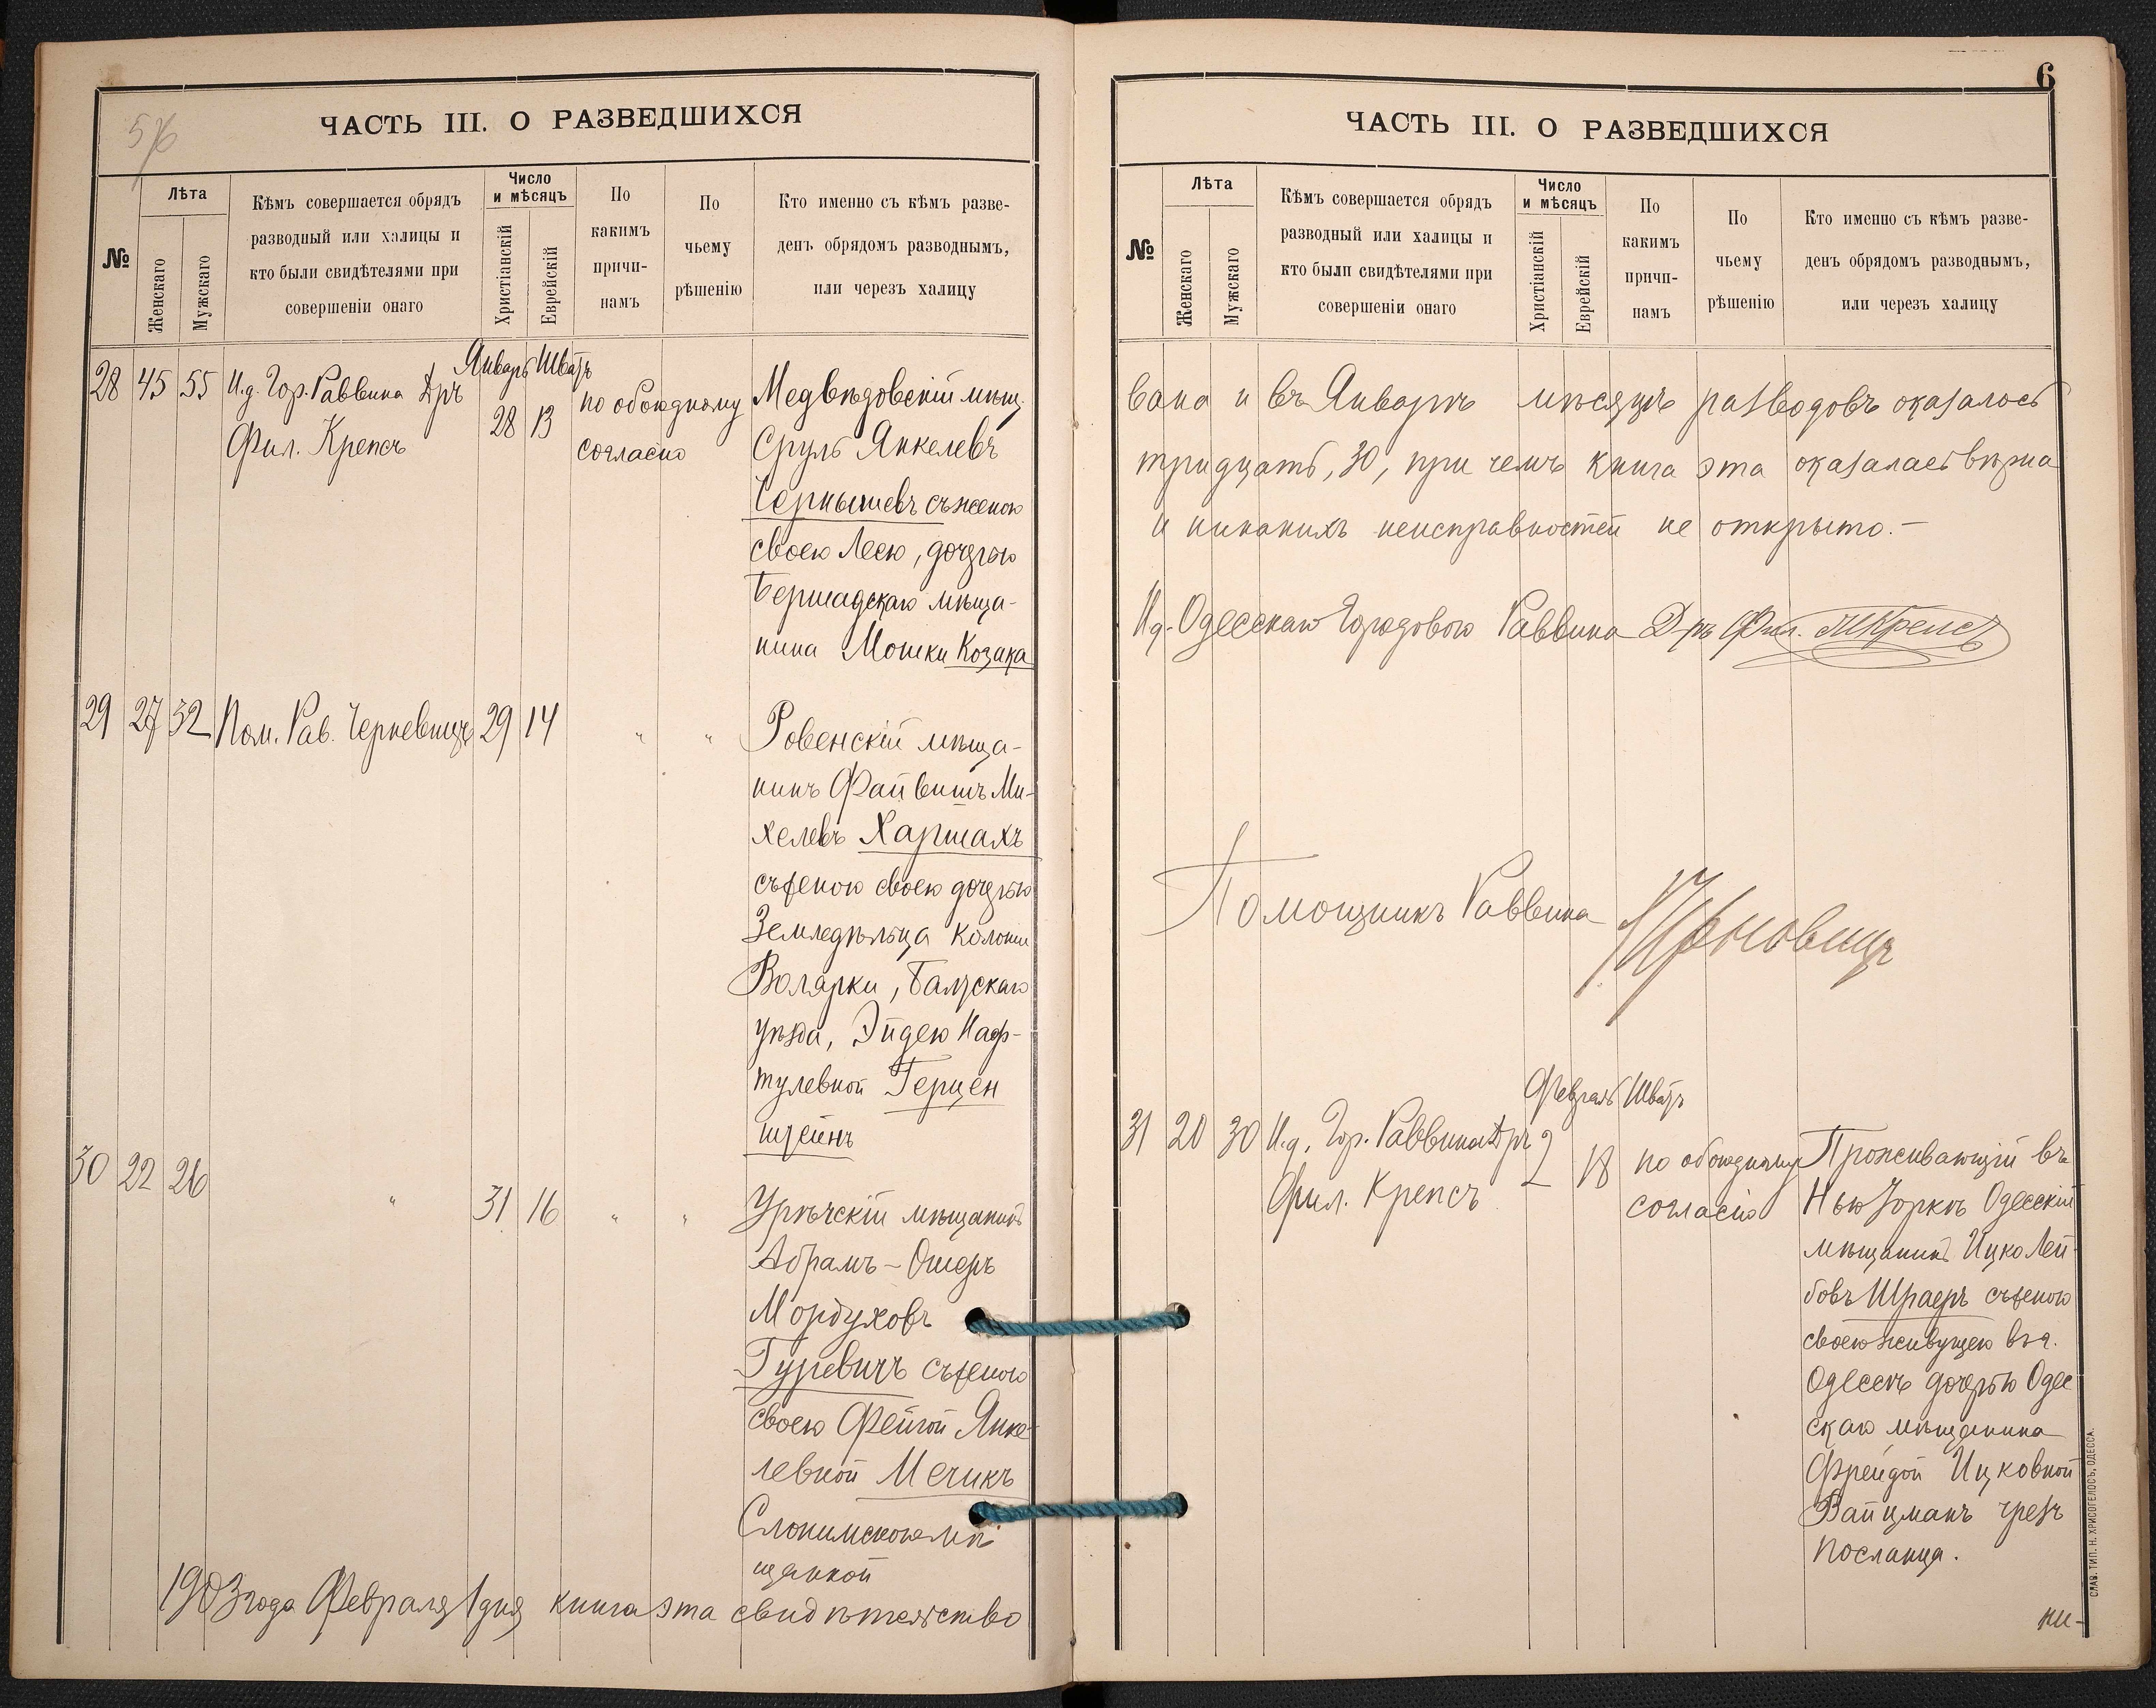 ЧАСТЬ III. О РАЗВЕДШИХСЯ
№
Лѣта
Женскаго
Мужскаго
Кѣмъ совершается обрядъ
разводный или халицы и
кто были свидѣтелями при
совершеніи онаго
Число
и мѣсяцъ
Христіанскій
Еврейскій
По
какимъ
причи-
намъ
По
чьему
рѣшенію
Кто именно съ кѣмъ разве-
денъ обрядомъ разводнымъ,
или черезъ халицу
Январь Шватъ
28 45 55 И.д. Гор. Раввина Д-ръ 28 13 по обоюдному Медвѣдовскій мѣщ.
Фил. Крепсъ согласію Сруль Янкелевъ
Чернышевъ съ женою
своею Леею, дочерью
Бершадскаго мѣща-
нина Мошки Козака
29 27 32 Пом. Рав. Черновицъ 29 14 " " Ровенскій мѣща-
нинъ Файвишъ Ми-
хелевъ Харшахъ
съ женою своею дочерью
Земледѣльца колоніи
Волярки, Балтскаго
уѣзда, Эйдею Наф-
тулевной Герцен
штейнъ
30 22 26 " 31 16 " " мѣщанинъ
Абрамъ-Ошеръ
Мордуховъ
Гуревичъ съ женою
своею Фейгой Янке-
левной Мечикъ
Слонимскою мѣ
щанкой
1903 года Февраля 1 дня книга эта свидѣтельство
6
ЧАСТЬ III. О РАЗВЕДШИХСЯ
№
Лѣта
Женскаго
Мужскаго
Кѣмъ совершается обрядъ
разводный или халицы и
кто были свидѣтелями при
совершеніи онаго
Число
и мѣсяцъ
Христіанскій
Еврейскій
По
какимъ
причи-
намъ
По
чьему
рѣшенію
Кто именно съ кѣмъ разве-
денъ обрядомъ разводнымъ,
или черезъ халицу
вана и въ Январѣ мѣсяцѣ разводовъ оказалось
тридцать, 30, при чемъ книга эта оказалась вѣрна
и никакихъ неисправностей не открыто.-
И.д. Одесскаго Городового Раввина Д-ръ Фил. Крепсъ
Помощникъ Раввина Черновицъ
Февраль Шватъ
31 20 30 И.д. Гор. Раввина Д-ръ 2 18 по обоюдному Проживающій въ
Фил. Крепсъ согласію Нью Іоркѣ Одесскій
мѣщанинъ Ицко Лей-
бовъ Шраеръ съ женою
своею живущею въ г.
Одессѣ дочерью Одес
скаго мѣщанина
Фрейдой Ицковной
Вайцманъ чрезъ
посланца.
ни-
СЛАВ. ТИП. Н. ХРИСОГЕЛОСЪ, ОДЕССА.